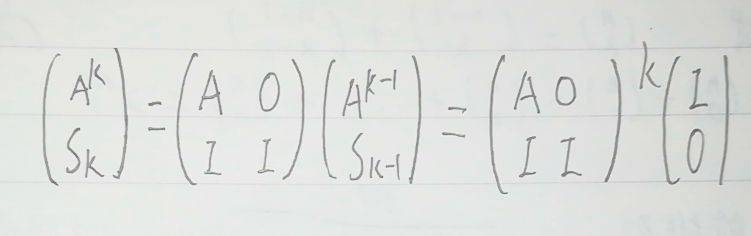 \begin{pmatrix} A^k \\ S_k \end{pmatrix} = \begin{pmatrix} A & 0 \\ I & I \end{pmatrix} \begin{pmatrix} A^{k-1} \\ S_{k-1} \end{pmatrix} = \begin{pmatrix} A & 0 \\ I & I \end{pmatrix}^k \begin{pmatrix} I \\ 0 \end{pmatrix}